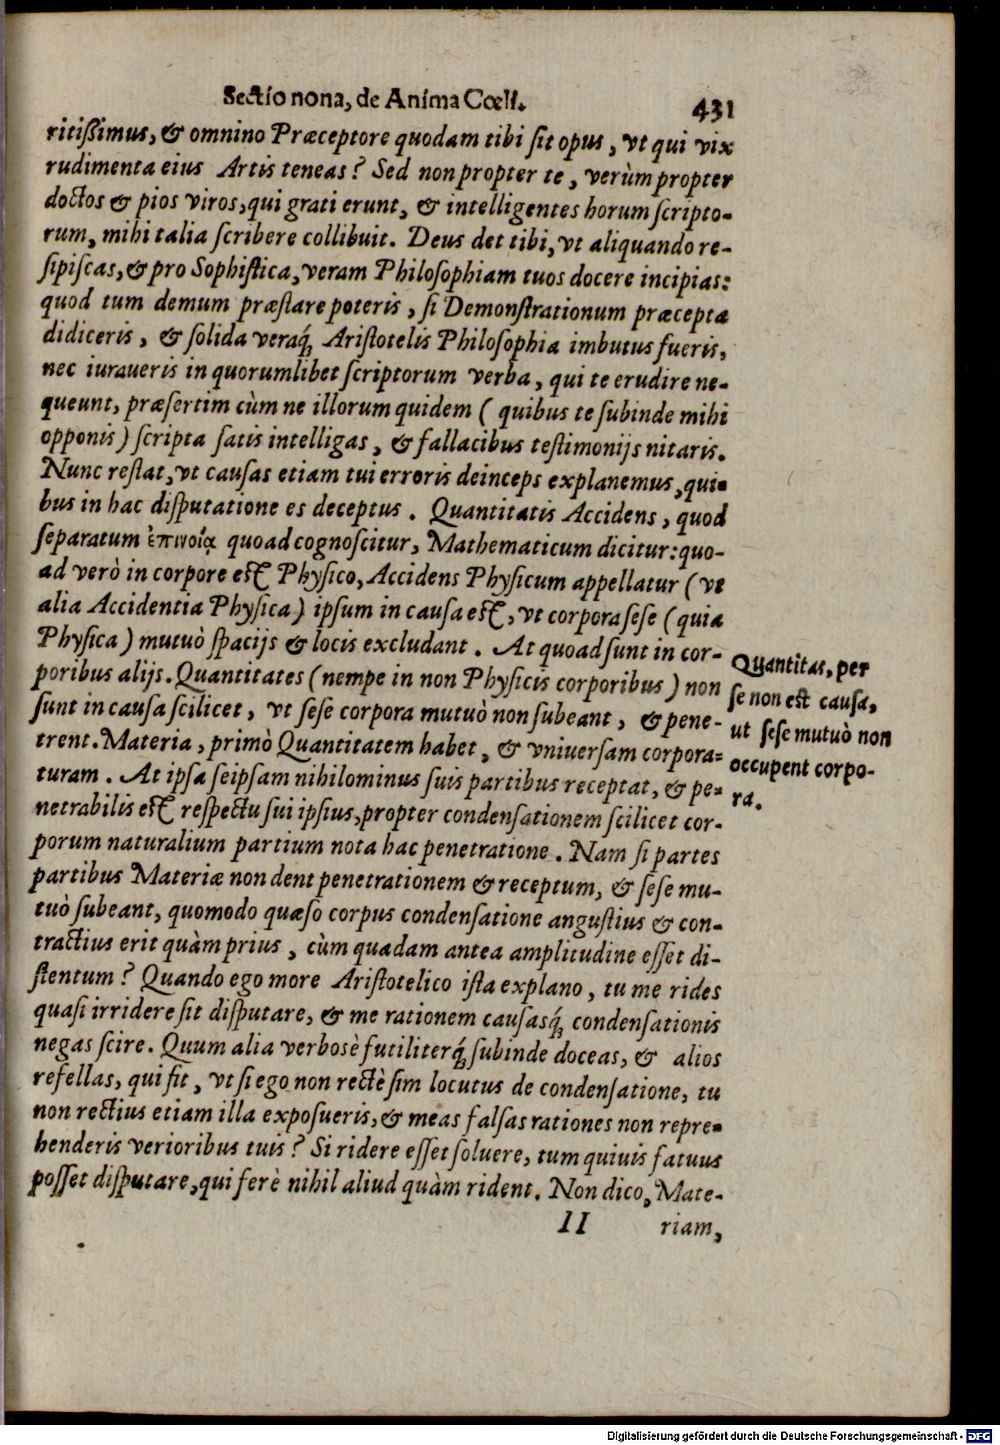 Sectio nona, de Anima Cœli.
431
ritißimus, & omnino Præceptore quodam tibi ſit opus, vt qui vix
rudimenta eius Artis teneas? Sed non propter te, verùm propter
doctos & pios viros, qui grati erunt, & intelligentes horum ſcripto-
rum, mihi talia ſcribere collibuit. Deus det tibi, vt aliquando re-
ſipiſcas, & pro Sophiſtica, veram Philoſophiam tuos docere incipias:
quod tum demum præſtare poteris, ſi Demonſtrationum præcepta
didiceris, & ſolida veraq́; Ariſtotelis Philoſophia imbutus fueris,
nec iuraueris in quorumlibet ſcriptorum verba, qui te erudire ne-
queunt, præſertim cùm ne illorum quidem (quibus te ſubinde mihi
opponis) ſcripta ſatis intelligas, & fallacibus teſtimonijs nitaris.
Nunc reſtat, vt cauſas etiam tui erroris deinceps explanemus, qui-
bus in hac diſputatione es deceptus. Quantitatis Accidens, quod
ſeparatum ἐπινοίᾳ quoad cognoſcitur, Mathematicum dicitur: quo-
ad verò in corpore eſt Phyſico, Accidens Phyſicum appellatur (vt
alia Accidentia Phyſica) ipſum in cauſa eſt, vt corpora ſeſe (quia
Phyſica) mutuò ſpacijs & locis excludant. At quoad ſunt in cor-
poribus alijs. Quantitates (nempe in non Phyſicis corporibus) non
ſunt in cauſa ſcilicet, vt ſeſe corpora mutuò non ſubeant, & pene-
trent. Materia, primò Quantitatem habet, & vniuerſam corpora-
turam. At ipſa ſeipſam nihilominus ſuis partibus receptat, & pe-
netrabilis eſt reſpectu ſui ipſius, propter condenſationem ſcilicet cor-
porum naturalium partium nota hac penetratione. Nam ſi partes
partibus Materiæ non dent penetrationem & receptum, & ſeſe mu-
tuò ſubeant, quomodo quæſo corpus condenſatione anguſtius & con-
tractius erit quàm prius, cùm quadam antea amplitudine eſſet di-
ſtentum? Quando ego more Ariſtotelico iſta explano, tu me rides
quaſi irridere ſit diſputare, & me rationem cauſasq́; condenſationis
negas ſcire. Quum alia verbosè futiliterq́; ſubinde doceas, & alios
refellas, qui fit, vt ſi ego non rectè ſim locutus de condenſatione, tu
non rectius etiam illa expoſueris, & meas falſas rationes non repre-
henderis verioribus tuis? Si ridere eſſet ſoluere, tum quiuis fatuus
poſſet diſputare, qui ferè nihil aliud quàm rident. Non dico, Mate-
Quantitas, per
ſe non eſt cauſa,
ut ſeſe mutuò non
occupent corpo-
ra.
II
riam,
Digitalisierung gefördert durch die Deutsche Forschungsgemeinschaft - DFG